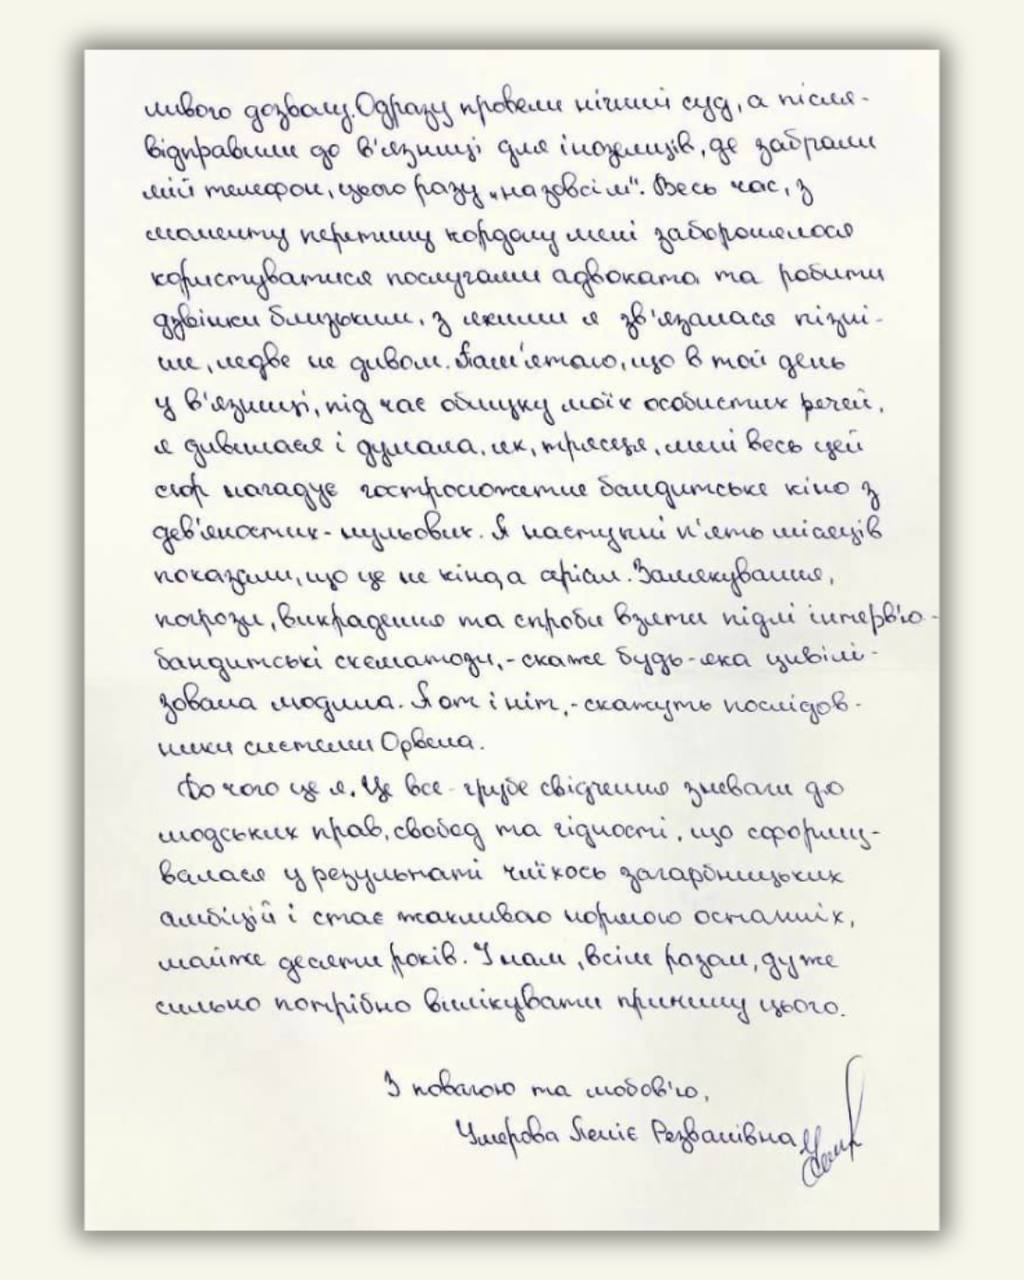 ливого дозволу. Одразу провели нічний суд, а після-
відправили до в'язниці для іноземців, де забрали
мій телефон, цього разу „назовсім". Весь час, з
моменту перетину кордону мені заборонялося
користуватися послугами адвоката та робити
дзвінки близьким, з якими я зв'язалася пізні-
ше, ледве не дивом. Пам'ятаю, що в той день
у в'язниці, під час обшуку моїх особистих речей,
я дивилася і думала, як, трясця, мені весь цей
сюр нагадує гостросюжетне бандитське кіно з
дев'яностих-нульових. Я наступні п'ять місяців
показали, що це не кінець а
Залякування,
погрози, викрадення та спроби взяти підлі інтерв'ю-
бандитські схематози, - скаже будь-яка цивілі-
зована людина. А от і ніт, - скажуть послідов-
ники системи Орвела.
До чого це я. Це все - грубе свідчення зневаги до
людських прав, свобод та гідності, що сформу-
валася у результаті чиїхось загарбницьких
амбіцій і стає жахливою нормою останніх,
майже десяти років. І нам, всім разом, дуже
сильно потрібно вилікувати причину цього.
З повагою та любов'ю,
Умерова Леніє Резванівна